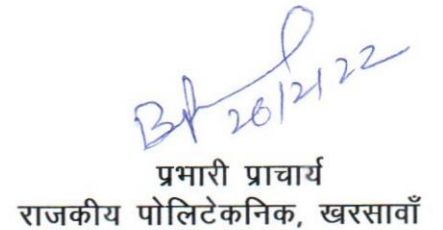 26/2/22
प्रभारी प्राचार्य
राजकीय पोलिटेकनिक, खरसावाँ